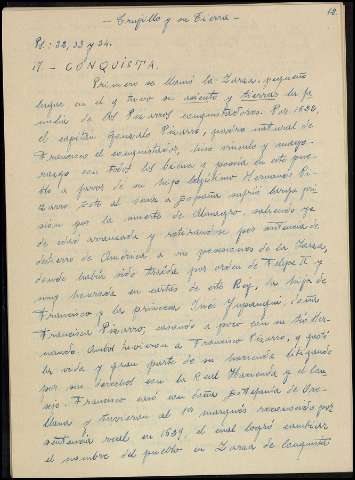 - Trujillo y su tierra -
12
Ps.: 32, 33 y 34.
17. - CONQUISTA.
Primero se llamó la Zarza, pequeño
lugar en el q tuvo su asiento y tierras la fa
milia de los Pizarros conquistadores. Por 1630,
el capitán Gonzalo Pizarro, padre natural de
Francisco el conquistador, hizo vínculo y mayo-
razgo con todos los bienes q poseía en este pue-
blo a favor de su hijo legítimo Hernando Pi-
zarro. Este al venir a España sufrió larga pri
sión por la muerte de Almagro, saliendo ya
de edad avanzada y retirándose por sentencia de
destierro de América a sus posesiones de la Zarza,
donde había sido traída por orden de Felipe II y
muy honrada en cartas de este Rey, la hija de
Francisco y la princesa Inés Yupanqui, doña
Francisca Pizarro, casando a poco con su tío Her-
nando. Ambos tuvieron a Francisco Pizarro, q gastó
la vida y gran parte de su hacienda litigando
por sus derechos con la Real Hacienda y el Con
sejo. Francisco casó con doña Estefanía de Ore-
llana y tuvieron al 1er marqués reconocido por
sentencia real en 1631, el cual logró cambiar
el nombre del pueblo en Zarza de Conquista